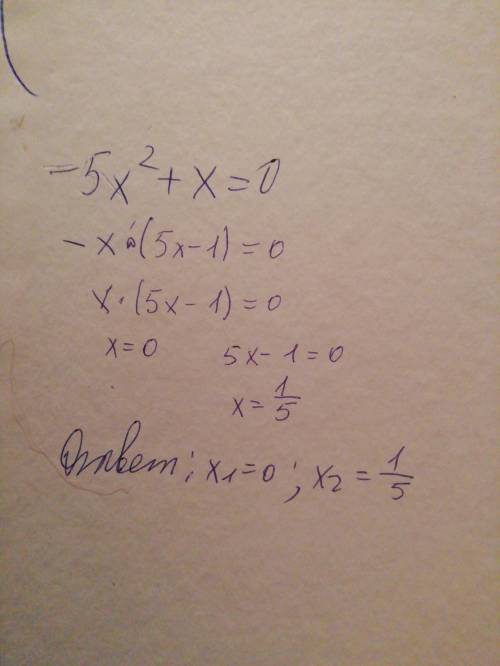 -5x² + x = 0
-x·(5x-1) = 0
x·(5x-1) = 0
x=0 5x-1=0
x = 1/5
Ответ: x₁=0; x₂ = 1/5